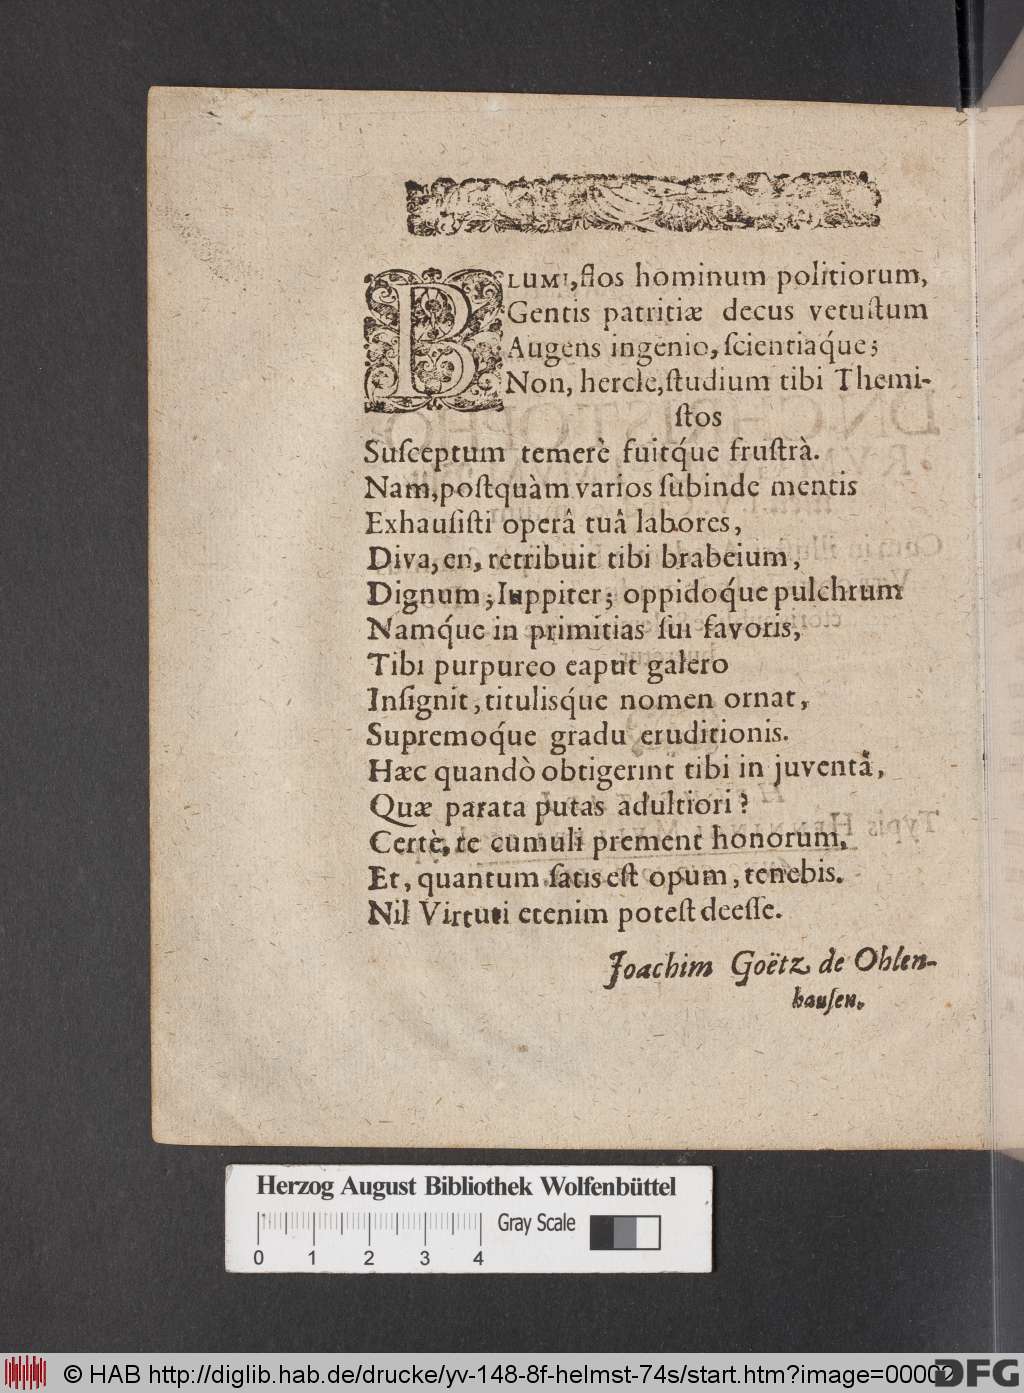 BLUMI, flos hominum politiorum,
Gentis patritiæ decus vetuſtum
Augens ingenio, ſcientiaq́ue;
Non, hercle, ſtudium tibi Themi-
ſtos
Suſceptum temerè fuitq́ue fruſtrà.
Nam, poſtquàm varios ſubinde mentis
Exhauſiſti operâ tuâ labores,
Diva, en, retribuit tibi brabeium,
Dignum; Iuppiter; oppidoq́ue pulchrum
Namq́ue in primitias ſui favoris,
Tibi purpureo caput galero
Inſignit, titulisq́ue nomen ornat,
Supremoq́ue gradu eruditionis.
Hæc quandò obtigerint tibi in juventâ,
Quæ parata putas adultiori?
Certè, te cumuli prement honorum,
Et, quantum ſatis eſt opum, tenebis.
Nil Virtuti etenim poteſt deeſſe.
Joachim Goëtz de Ohlen-
hauſen.
Herzog August Bibliothek Wolfenbüttel
Gray Scale
0 1 2 3 4
© HAB http://diglib.hab.de/drucke/yv-148-8f-helmst-74s/start.htm?image=00002
DFG